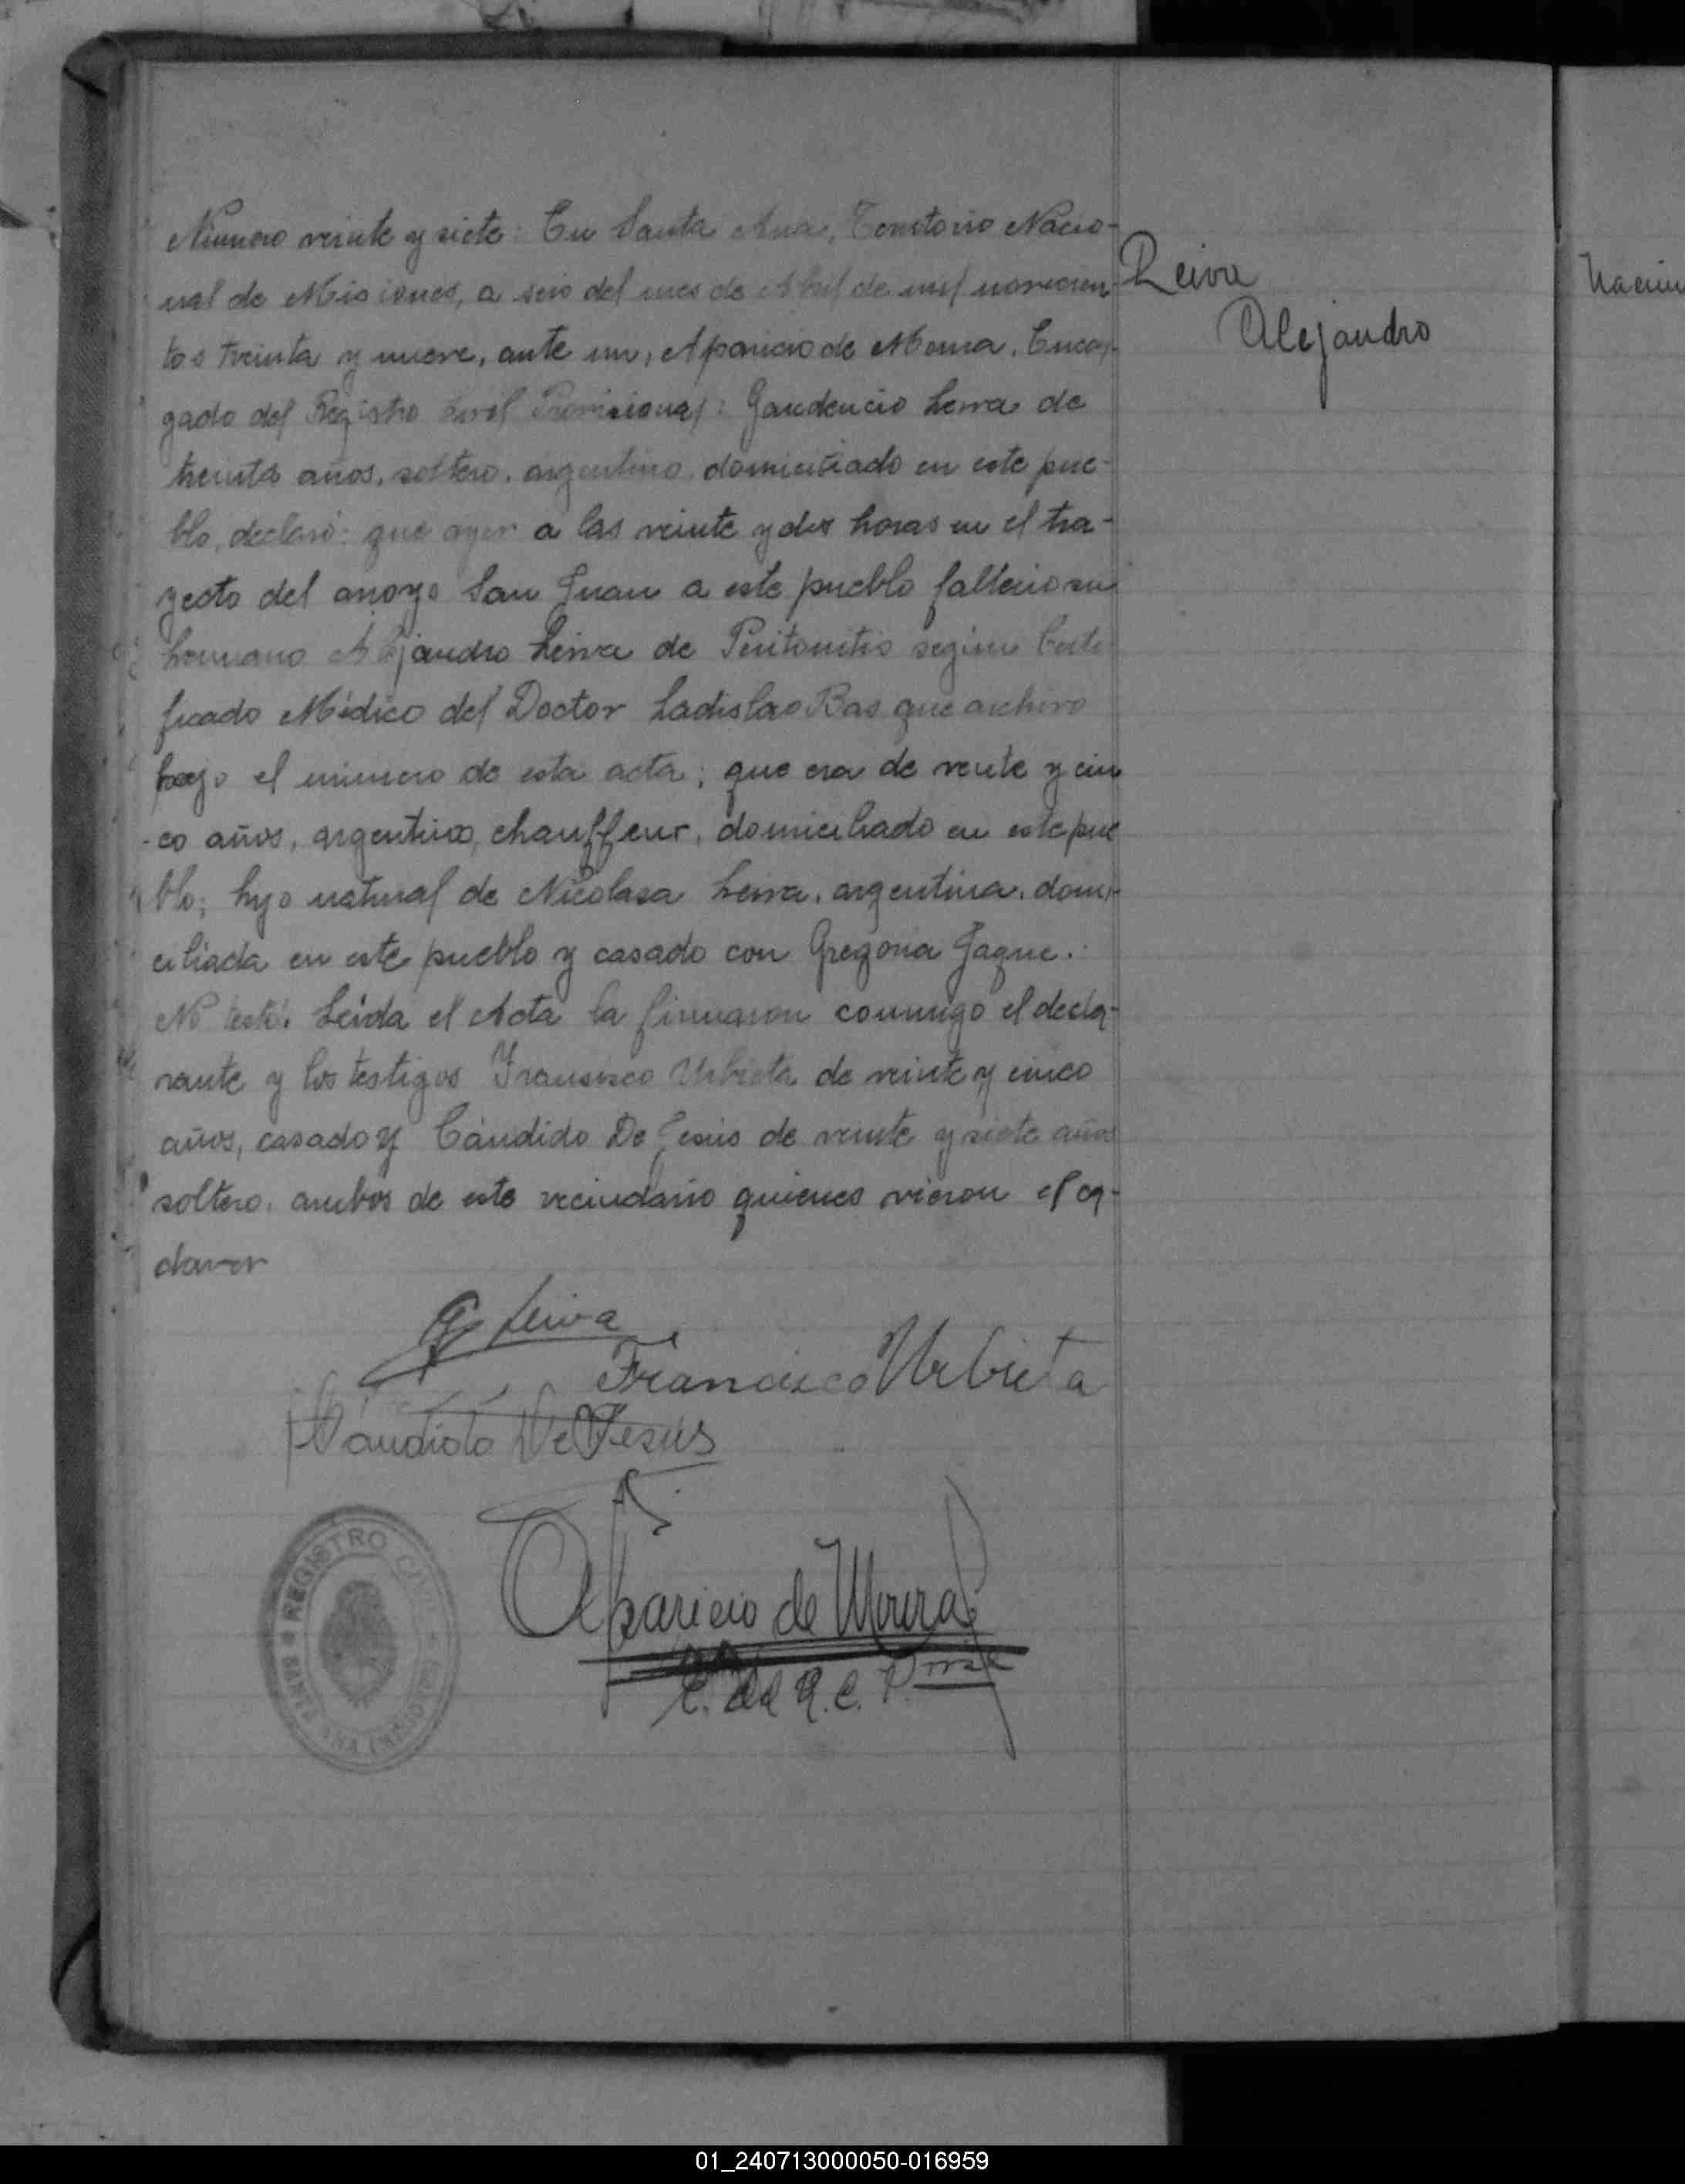 Número veinte y siete: En Santa Ana, Territorio Nacio-
nal de Misiones, a seis del mes de Abril de mil novecien-
tos treinta y nueve, ante mi, Aparicio de Moura, Encar-
gado del Registro Civil Provisional: Gaudencio Leiva de
treinta años, soltero, argentino, domiciliado en este pue-
blo, declaró: que ayer a las veinte y dos horas en el tra-
yecto del arroyo San Juan a este pueblo falleció su
hermano Alejandro Leiva de Peritonitis según Certi
ficado Médico del Doctor Ladislao Bas que archivo
bajo el número de esta acta; que era de veinte y cin
-co años, argentino, chauffeur, domiciliado en este pue
blo; hijo natural de Nicolasa Leiva, argentina, domi-
ciliada en este pueblo y casado con Gregoria Jaque.
No testó. Leída el Acta la firmaron conmigo el decla-
rante y los testigos Francisco Urbieta de veinte y cinco
años, casado y Cándido De Jesús de veinte y siete años
soltero, ambos de este vecindario quienes vieron el ca-
daver
Leiva
Alejandro
G Leiva
Francisco Urbieta
Candido De Jesús
Aparicio de Moura
E. del R. C. P.
REGISTRO CIVIL
SANTA ANA (MISIONES)
01_240713000050-016959